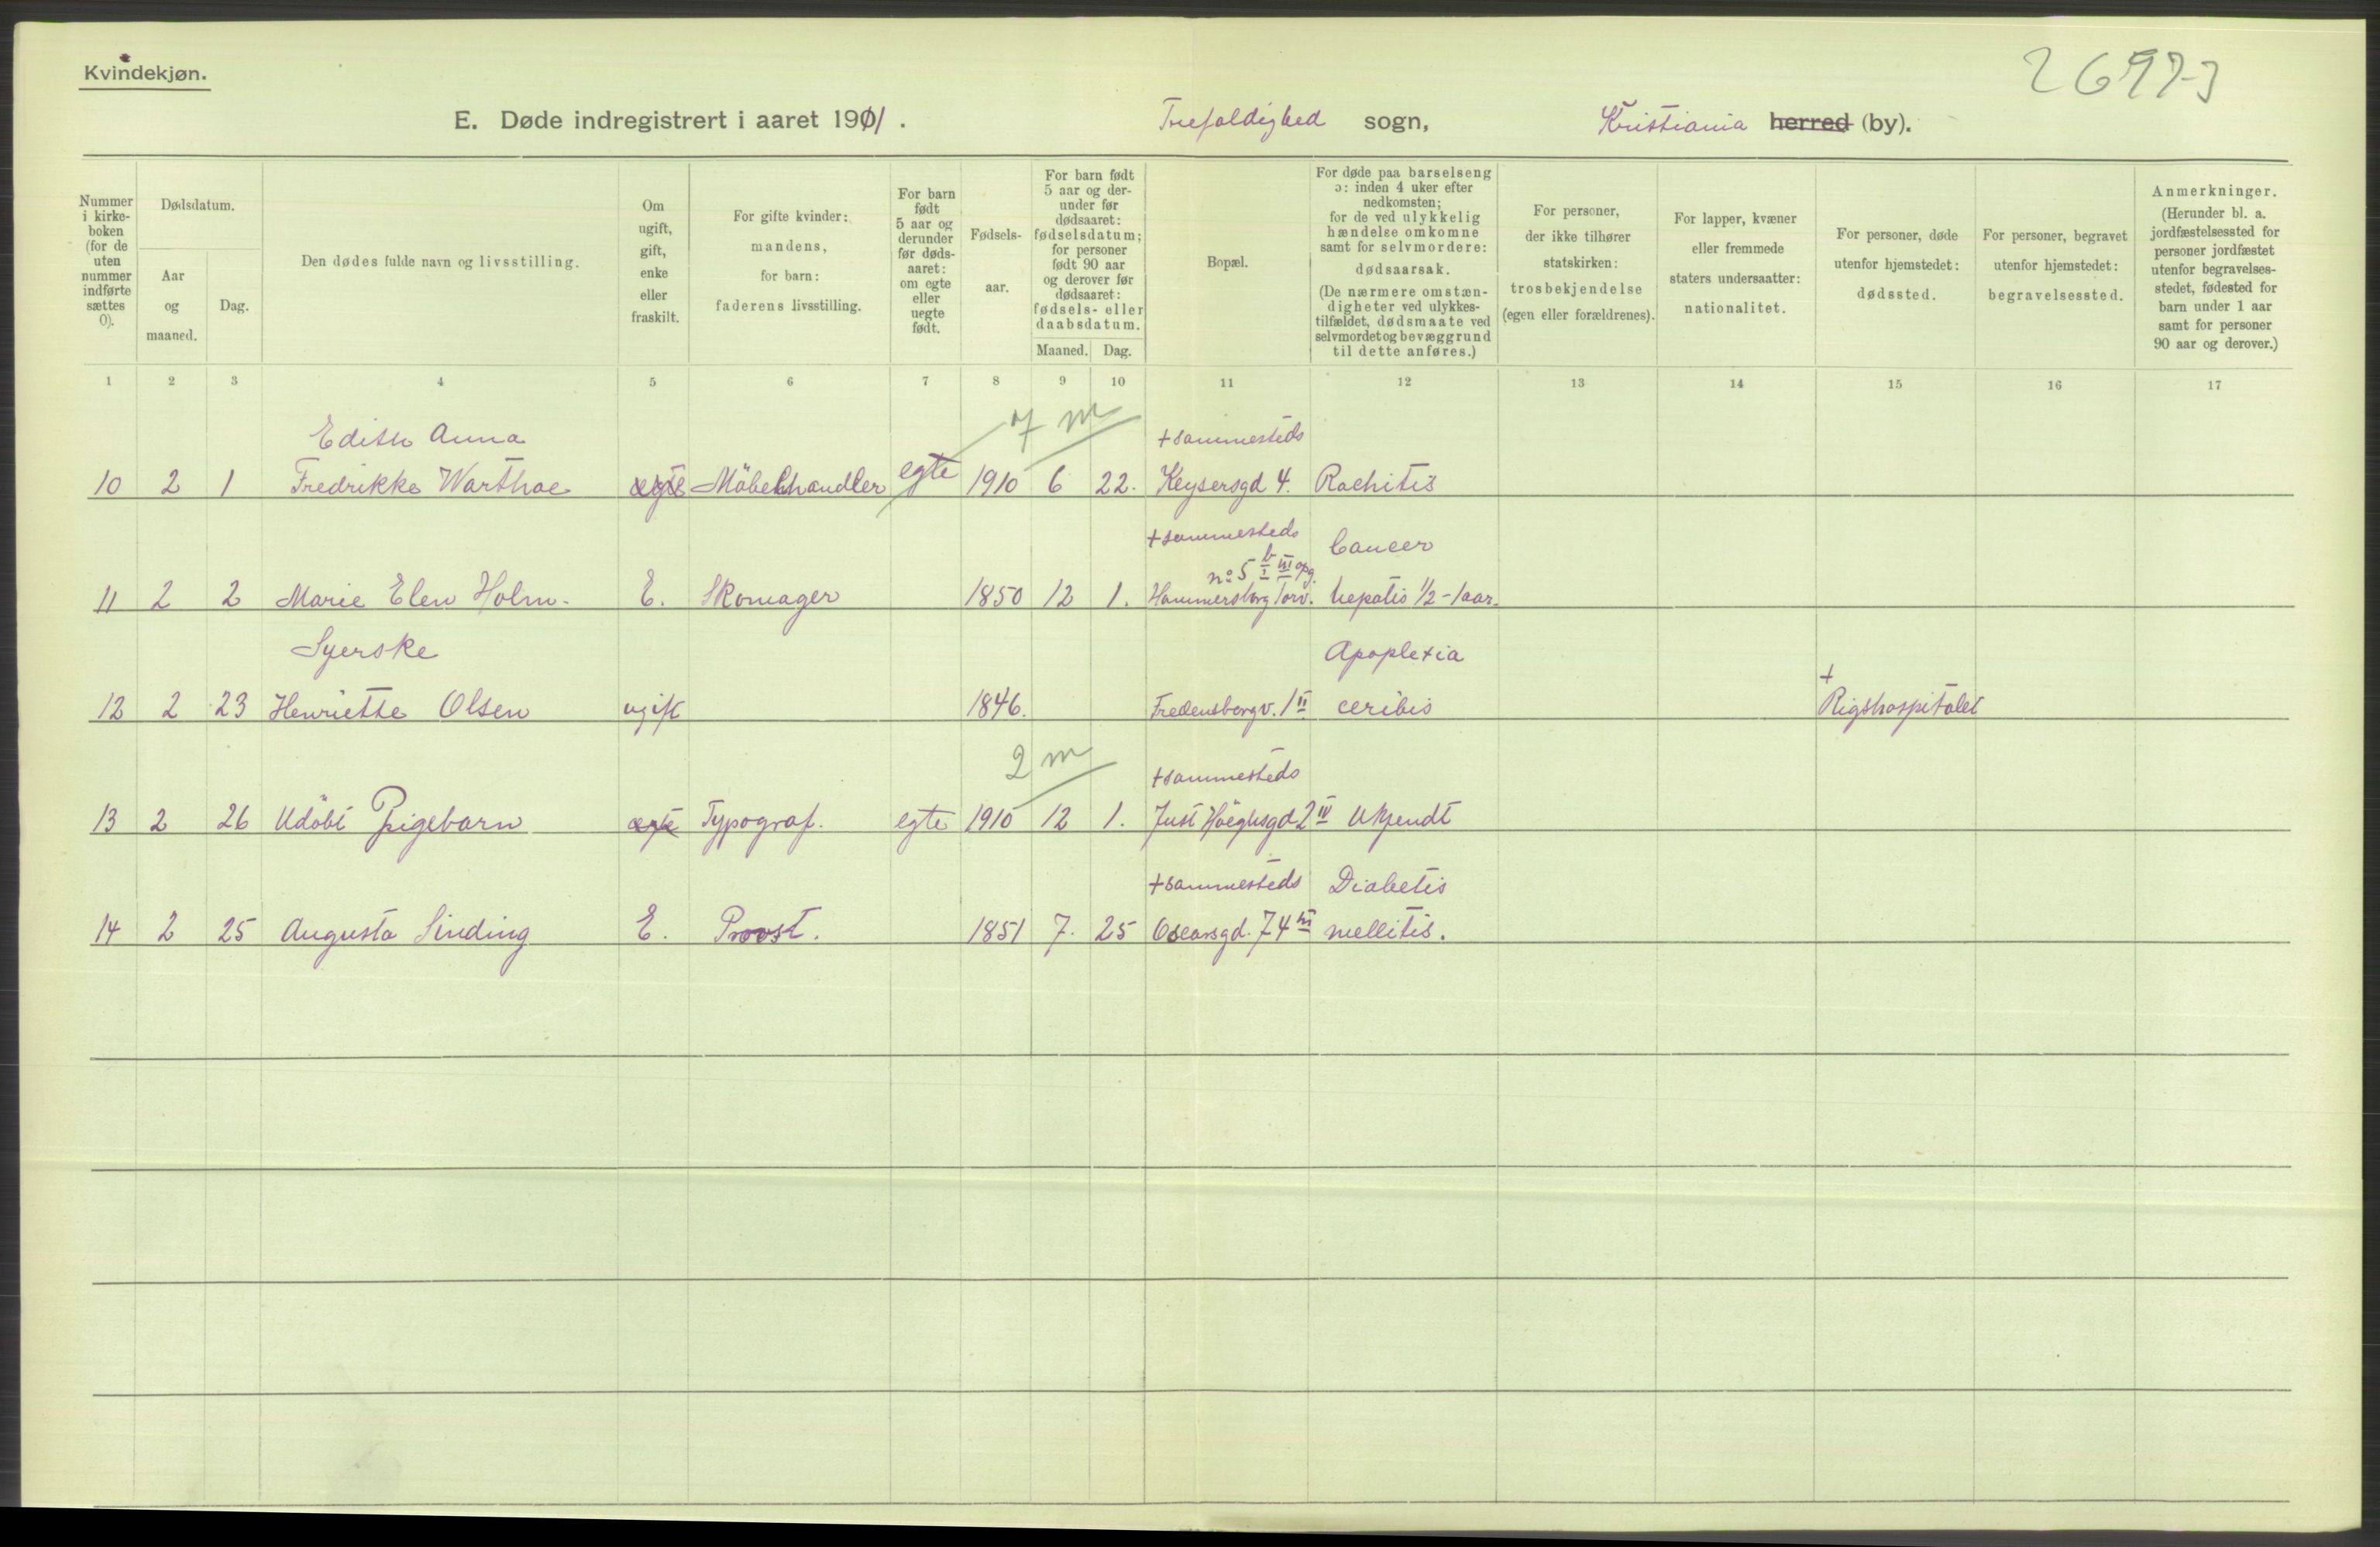 Kvindekjøn.
2697-3
E. Døde indregistrert i aaret 1911. Trefoldighed sogn, Kristiania herred (by).
Nummer i kirkeboken (for de uten nummer indførte sættes 0).
Dødsdatum.
Aar og maaned.
Dag.
Den dødes fulde navn og livsstilling.
Om ugift, gift, enke eller fraskilt.
For gifte kvinder: mandens, for barn: faderens livsstilling.
For barn født 5 aar og derunder før dødsaaret: om egte eller uegte født.
Fødselsaar.
For barn født 5 aar og derunder før dødsaaret: fødselsdatum; for personer født 90 aar og derover før dødsaaret: fødsels- eller daabsdatum.
Maaned. Dag.
Bopæl.
For døde paa barselseng ɔ: inden 4 uker efter nedkomsten; for de ved ulykkelig hændelse omkomne samt for selvmordere: dødsaarsak. (De nærmere omstændigheter ved ulykkestilfældet, dødsmaate ved selvmordet og bevæggrund til dette anføres.)
For personer, der ikke tilhører statskirken: trosbekjendelse (egen eller forældrenes).
For lapper, kvæner eller fremmede staters undersaatter: nationalitet.
For personer, døde utenfor hjemstedet: dødssted.
For personer, begravet utenfor hjemstedet: begravelsessted.
Anmerkninger. (Herunder bl. a. jordfæstelsessted for personer jordfæstet utenfor begravelsesstedet, fødested for barn under 1 aar samt for personer 90 aar og derover.)
1 2 3 4 5 6 7 8 9 10 11 12 13 14 15 16 17
7 m
Edith Anna + sammesteds
10 2 1 Fredrikke Warthoe egte Möbelhandler egte 1910 6 22. Keysersgd 4. Rachitis
+ sammesteds Cancer
no 5 b I III opg.
11 2 2 Marie Elen Holm. E. Skomager 1850 12 1. Hammersborg Torv. hepatis 1/2 - 1 aar.
Syerske Apoplexia +
12 2 23 Henriette Olsen ugift 1846. Fredensborgv. 1 II ceribis Rigshospitalet
2 m + sammesteds
13 2 26 Udöbt Pigebarn egte Typograf. egte 1910 12 1. Just Höeghsgd 2 IV Ukjendt
+ sammesteds Diabetis
14 2 25 Augusta Sinding E. Provst. 1851 7. 25 Oscarsgd. 74 III mellitis.